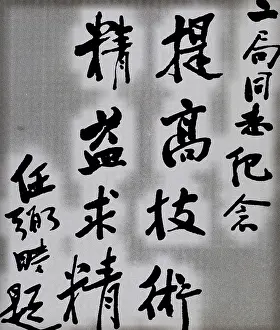 二局同志纪念
提高技術
精益求精
任弼時題